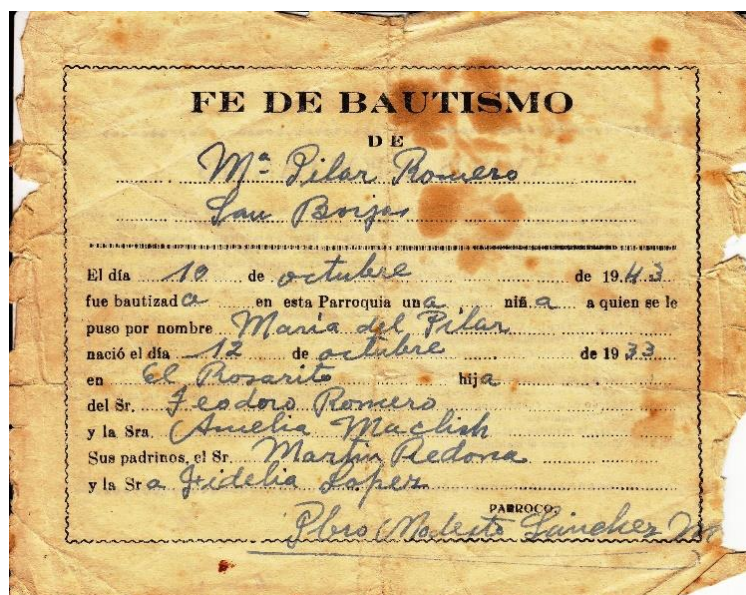 FE DE BAUTISMO
DE
Mª Pilar Romero
San Borjas
El día 10 de octubre de 1943
fue bautizada en esta Parroquia una niña a quien se le
puso por nombre María del Pilar
nació el día 12 de octubre de 1933
en El Rosarito hija
del Sr. Teodoro Romero
y la Sra. Amelia Maclish
Sus padrinos, el Sr. Martin Redona
y la Sra Fidelia Lopez
PARROCO,
Pbro Modesto Sánchez M